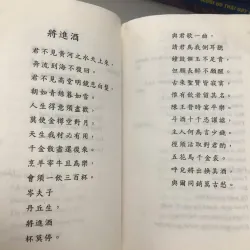 將進酒
君不見黃河之水天上來，
奔流到海不復回。
君不見高堂明鏡悲白髮，
朝如青絲暮成雪。
人生得意須盡歡，
莫使金樽空對月。
天生我材必有用，
千金散盡還復來。
烹羊宰牛且為樂，
會須一飲三百杯。
岑夫子
丹丘生，
將進酒
杯莫停。
與君歌一曲，
請君為我側耳聽。
鐘鼓饌玉不足貴，
但願長醉不願醒。
古來聖賢皆寂寞，
惟有飲者留其名。
陳王昔時宴平樂，
斗酒十千恣讙謔。
主人何為言少錢，
徑須沽取對君酌。
五花馬千金裘，
呼兒將出換美酒，
與爾同銷萬古愁。